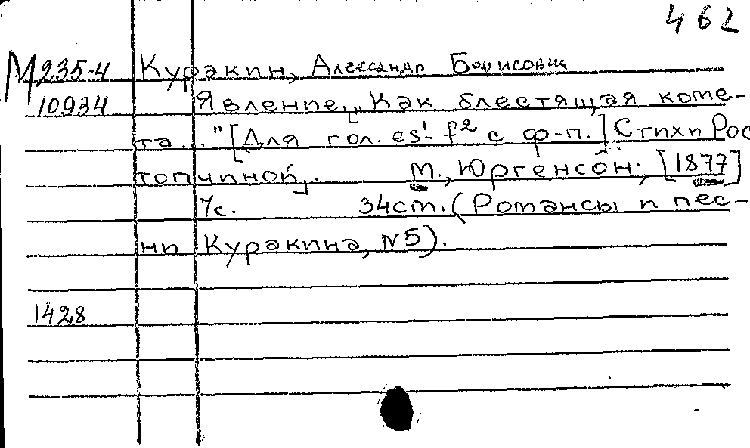 462
М 235-4 Куракин, Александр Борисович
10934 Явление. „Как блестящая коме-
та..." [Для гол. es¹-f² с ф-п.] Стихи Рос
топчиной. М., Юргенсон, [1877]
7с. 34см. (Романсы и пес-
ни Куракина, №5).
1428